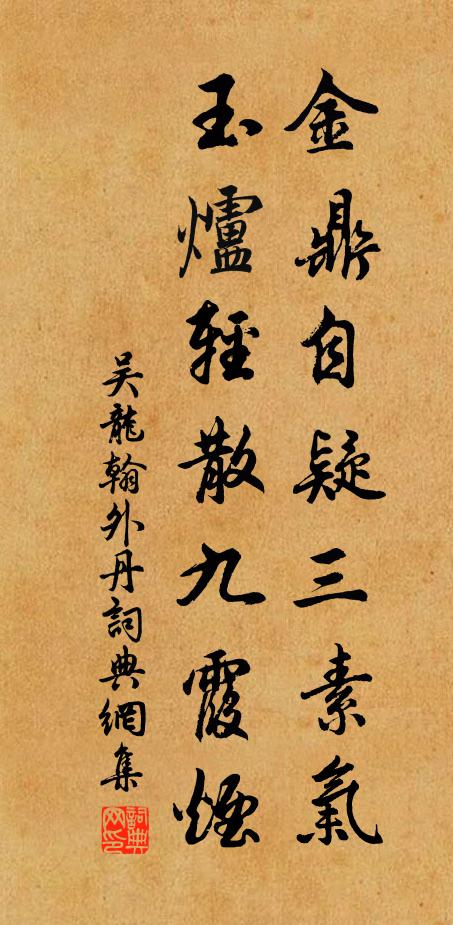 金鼎自疑三素氣
玉爐輕散九霞煙
吳龍翰外丹詞典網集
詞典网印